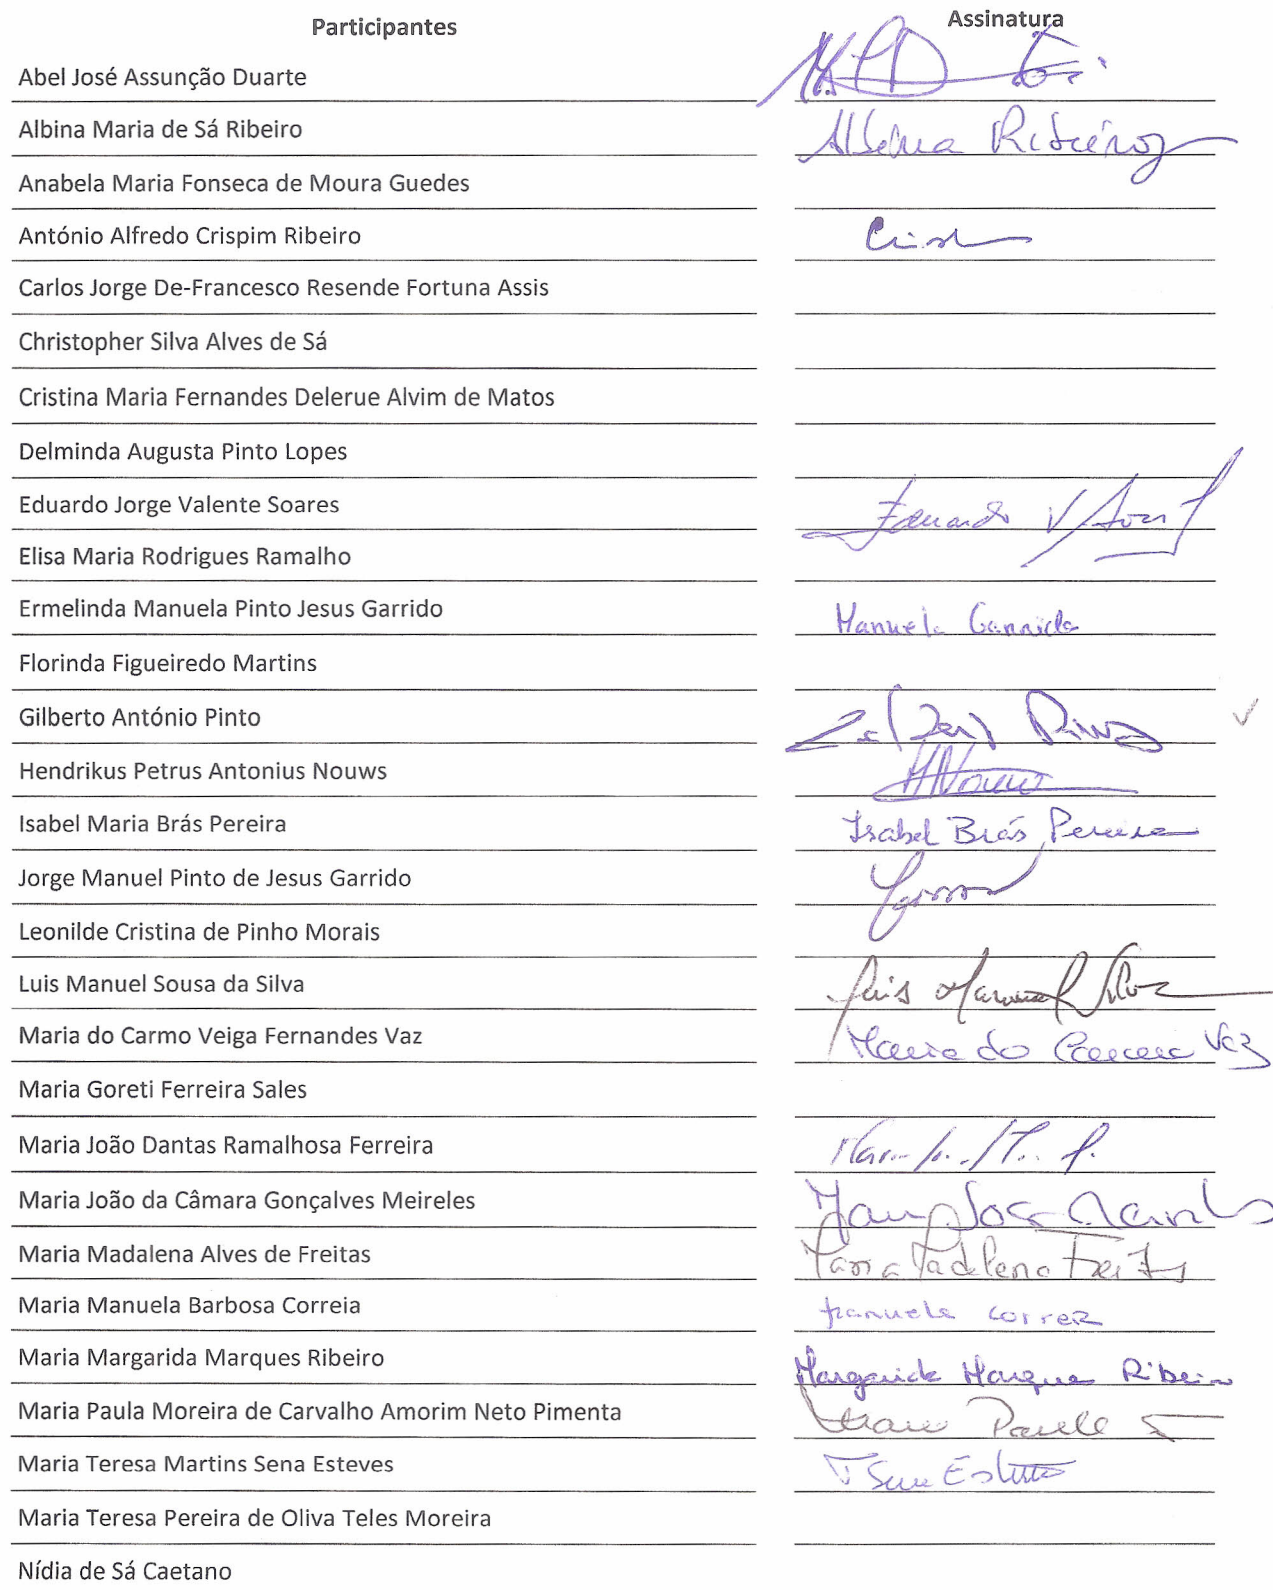 Participantes Assinatura
Abel José Assunção Duarte
Albina Maria de Sá Ribeiro Albina Ribeiro
Anabela Maria Fonseca de Moura Guedes
António Alfredo Crispim Ribeiro
Carlos Jorge De-Francesco Resende Fortuna Assis
Christopher Silva Alves de Sá
Cristina Maria Fernandes Delerue Alvim de Matos
Delminda Augusta Pinto Lopes
Eduardo Jorge Valente Soares Eduardo V Soares
Elisa Maria Rodrigues Ramalho
Ermelinda Manuela Pinto Jesus Garrido Manuela Garrido
Florinda Figueiredo Martins
Gilberto António Pinto
Hendrikus Petrus Antonius Nouws HNouws
Isabel Maria Brás Pereira Isabel Brás Pereira
Jorge Manuel Pinto de Jesus Garrido
Leonilde Cristina de Pinho Morais
Luis Manuel Sousa da Silva Luis Manuel Silva
Maria do Carmo Veiga Fernandes Vaz Maria do Carmo Vaz
Maria Goreti Ferreira Sales
Maria João Dantas Ramalhosa Ferreira
Maria João da Câmara Gonçalves Meireles Maria João Meireles
Maria Madalena Alves de Freitas Maria Madalena Freitas
Maria Manuela Barbosa Correia Manuela Correia
Maria Margarida Marques Ribeiro Margarida Marques Ribeiro
Maria Paula Moreira de Carvalho Amorim Neto Pimenta Maria Paula
Maria Teresa Martins Sena Esteves T Sena Esteves
Maria Teresa Pereira de Oliva Teles Moreira
Nídia de Sá Caetano